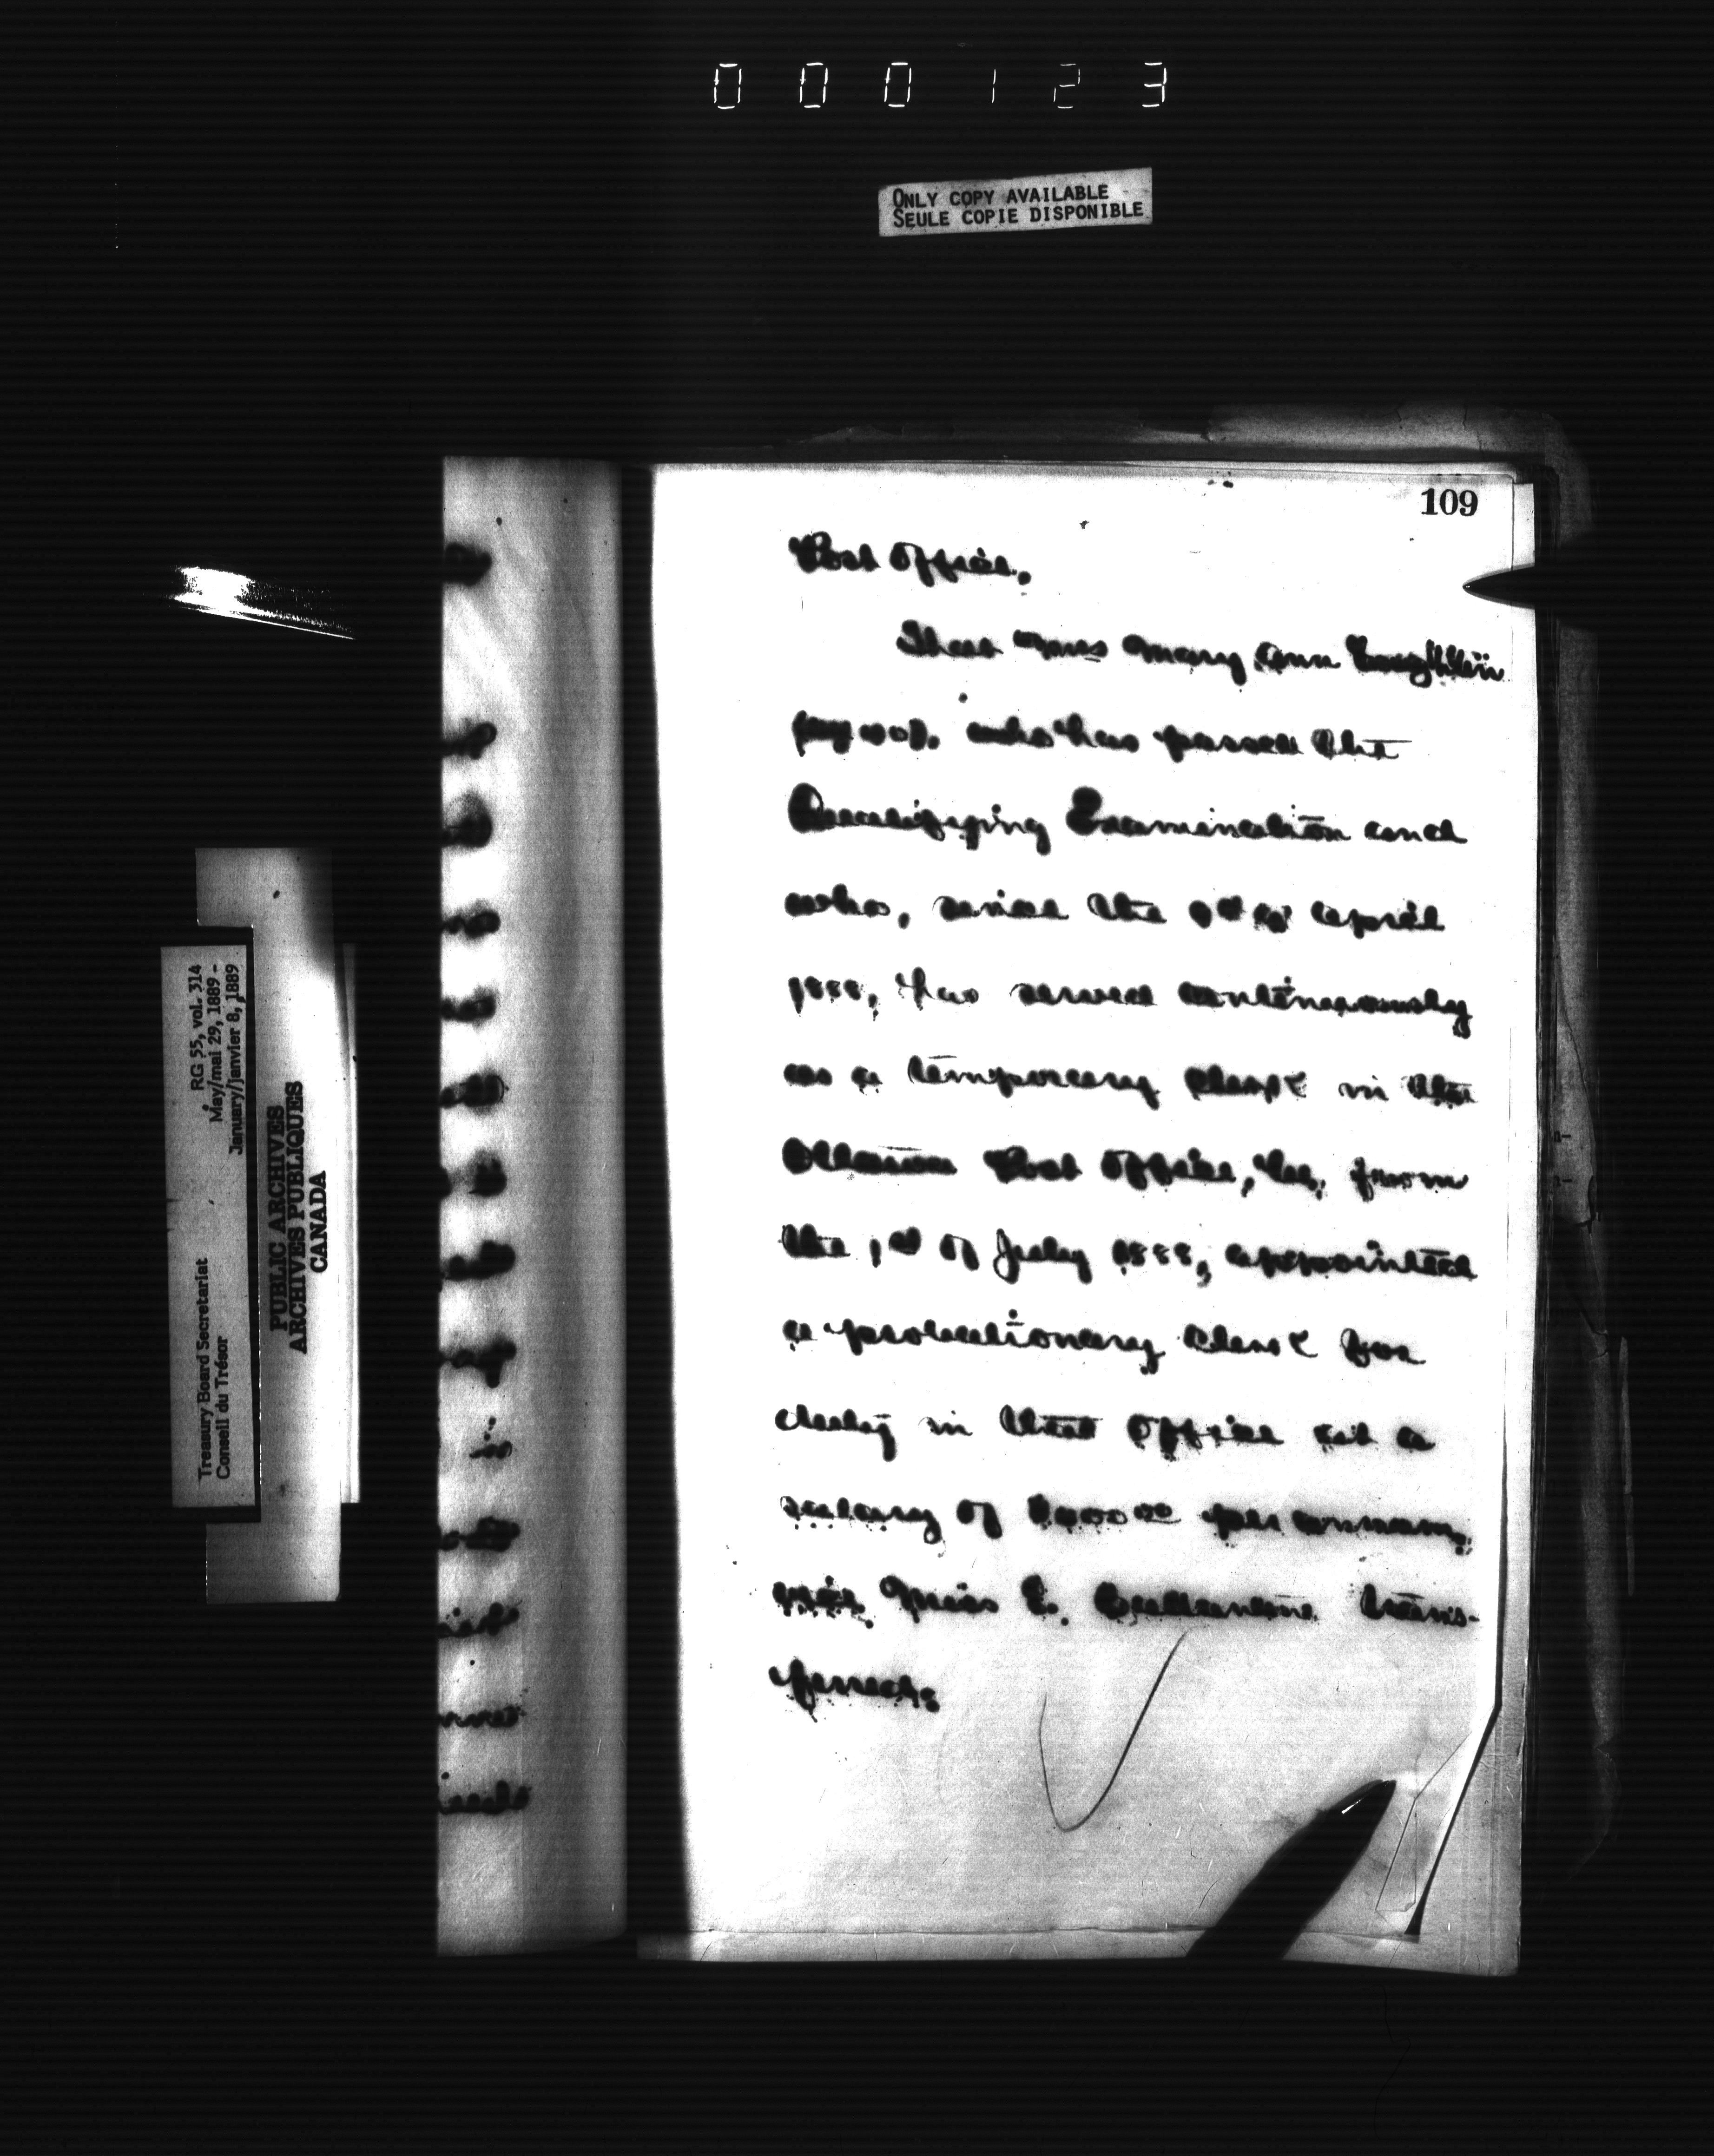 000123
ONLY COPY AVAILABLE
SEULE COPIE DISPONIBLE
109
Post Office,
That Miss Mary Ann
who has passed the
Qualifying Examination and
who, since the of April
1888, has served continuously
as a temporary clerk in the
Ottawa Post Office, be, from
the 1st of July 1888, appointed
a probationary clerk for
duty in that Office at a
salary of per annum,
vice Miss E. trans-
ferred.
RG 55, vol. 314
May/mai 29, 1889 -
January/janvier 8, 1889
Treasury Board Secretariat
Conseil du Trésor
PUBLIC ARCHIVES
ARCHIVES PUBLIQUES
CANADA